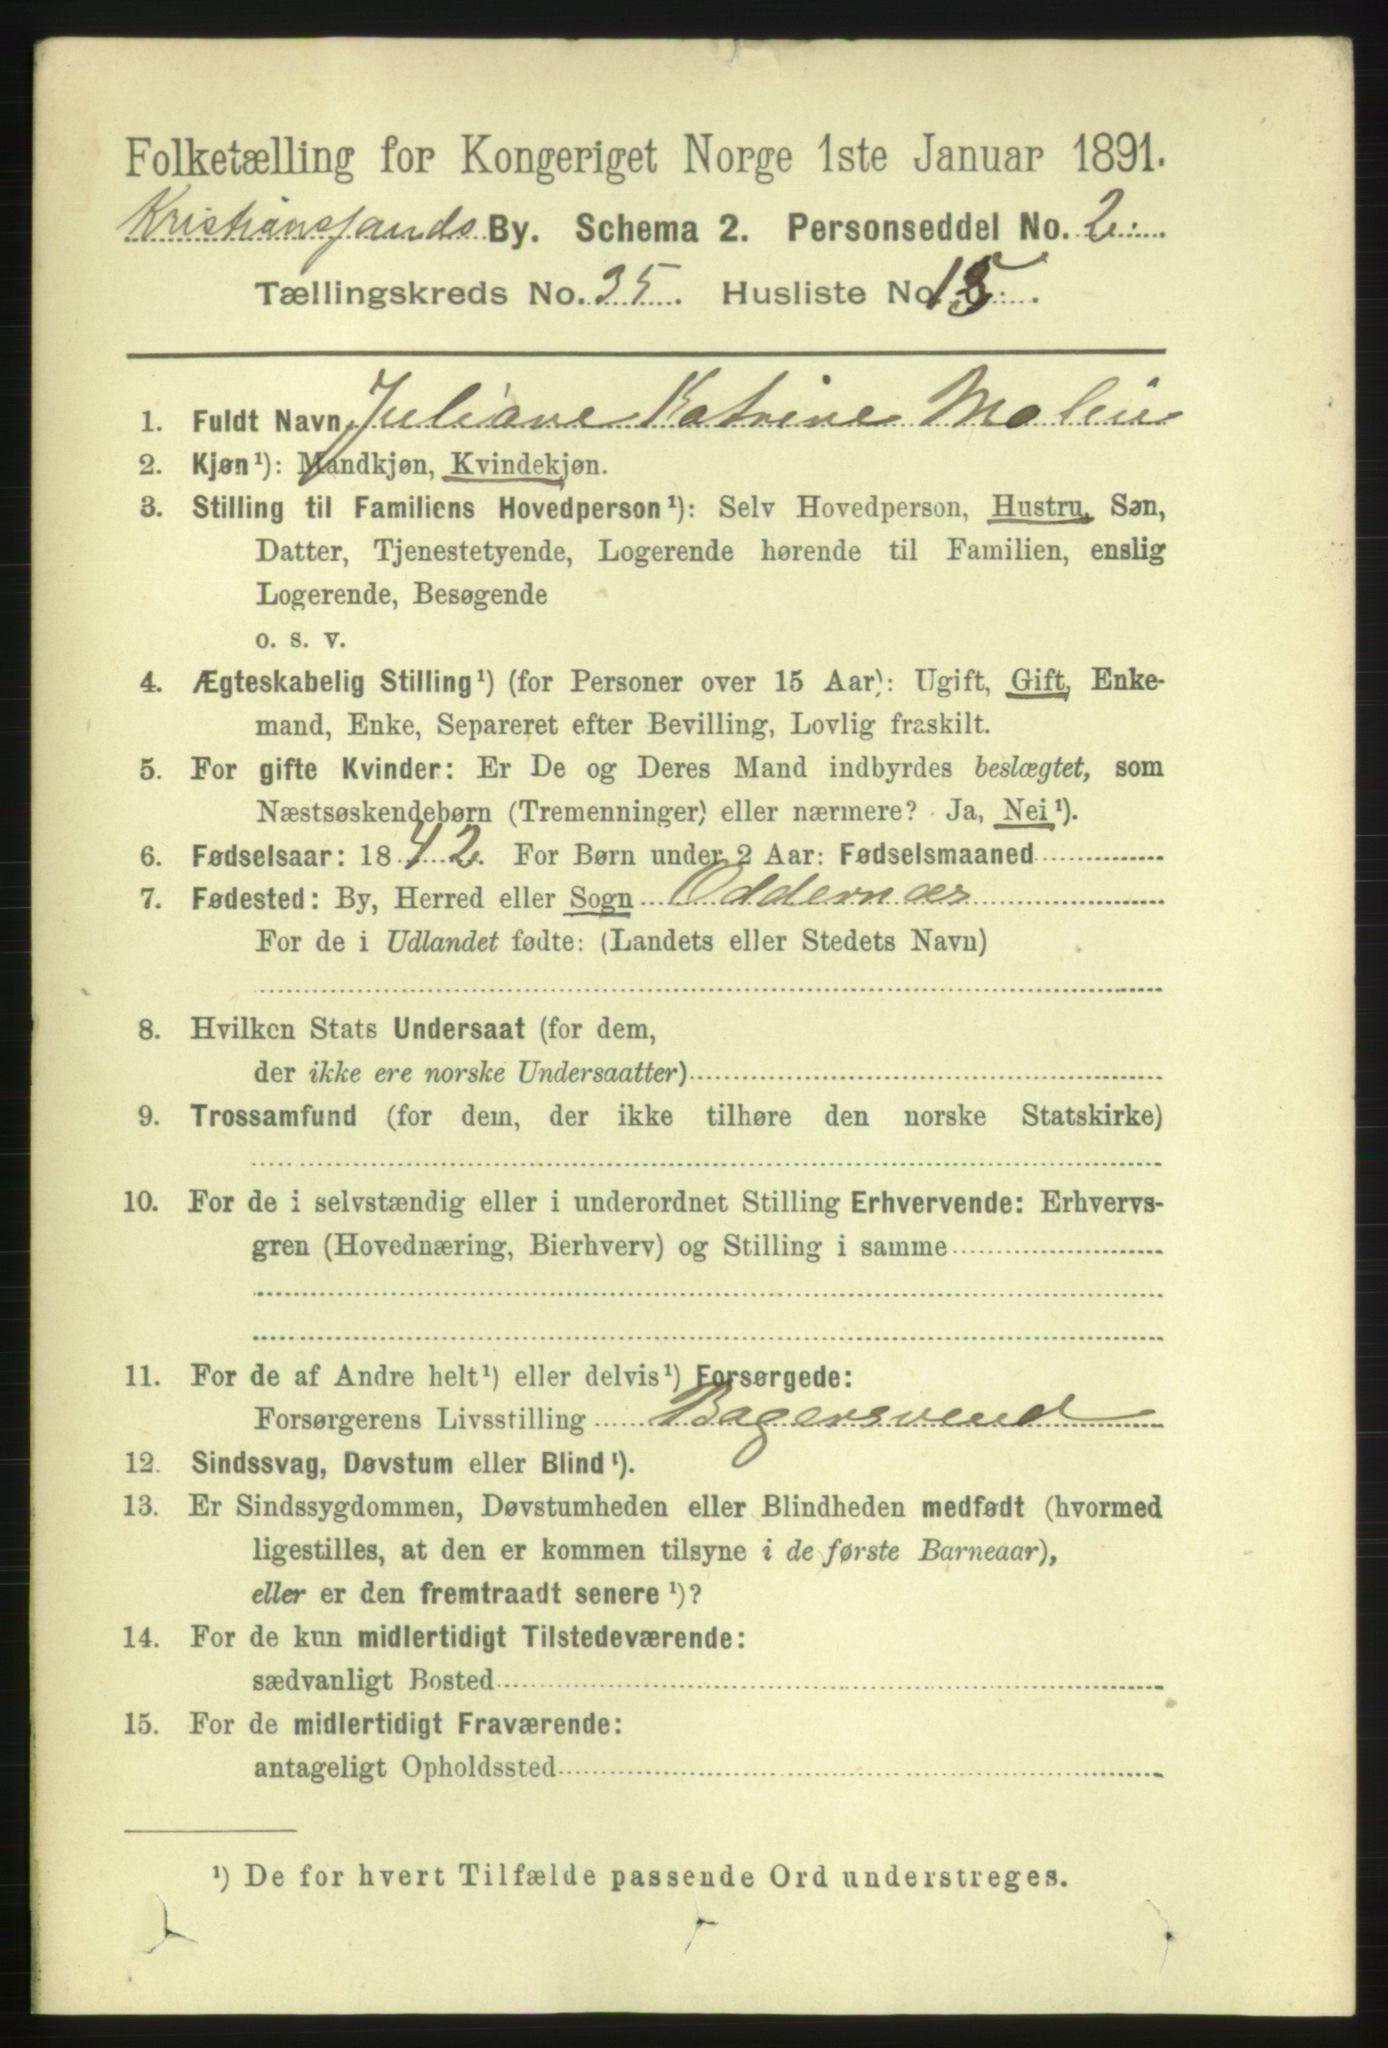 Folketælling for Kongeriget Norge 1ste Januar 1891.
Kristianssands By. Schema 2. Personseddel No. 2.
Tællingskreds No. 35. Husliste No. 15.
1. Fuldt Navn Juliane Katrine Molin
2. Kjøn¹): Mandkjøn, Kvindekjøn.
3. Stilling til Familiens Hovedperson¹): Selv Hovedperson, Hustru, Søn,
Datter, Tjenestetyende, Logerende hørende til Familien, enslig
Logerende, Besøgende
o. s. v.
4. Ægteskabelig Stilling¹) (for Personer over 15 Aar): Ugift, Gift, Enke-
mand, Enke, Separeret efter Bevilling, Lovlig fraskilt.
5. For gifte Kvinder: Er De og Deres Mand indbyrdes beslægtet, som
Næstsøskendebørn (Tremenninger) eller nærmere? Ja, Nei¹).
6. Fødselsaar: 1842. For Børn under 2 Aar: Fødselsmaaned
7. Fødested: By, Herred eller Sogn Oddernæs
For de i Udlandet fødte: (Landets eller Stedets Navn)
8. Hvilken Stats Undersaat (for dem,
der ikke ere norske Undersaatter)
9. Trossamfund (for dem, der ikke tilhøre den norske Statskirke)
10. For de i selvstændig eller i underordnet Stilling Erhvervende: Erhvervs-
gren (Hovednæring, Bierhverv) og Stilling i samme
11. For de af Andre helt¹) eller delvis¹) Forsørgede:
Forsørgerens Livsstilling Bagersvend
12. Sindssvag, Døvstum eller Blind¹).
13. Er Sindssygdommen, Døvstumheden eller Blindheden medfødt (hvormed
ligestilles, at den er kommen tilsyne i de første Barneaar),
eller er den fremtraadt senere¹)?
14. For de kun midlertidigt Tilstedeværende:
sædvanligt Bosted
15. For de midlertidigt Fraværende:
antageligt Opholdssted
¹) De for hvert Tilfælde passende Ord understreges.